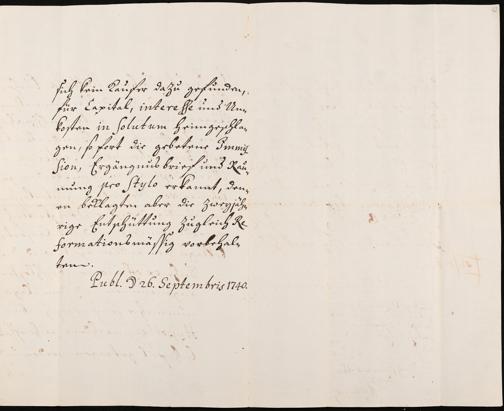 sich kein Käufer dazu gefunden,
für Capital, interesse und Un-
kosten in Solutum heimgeschla-
gen, sofort die gebetene Immis-
sion, Ergängnusbrief und Rau-
mung pro Stylo erkannt, den-
en beklagten aber die zweyjäh-
rige Entschüttung zugleich Re-
formationsmässig vorbehal-
ten.
Publ. D 26. Septembris 1740.